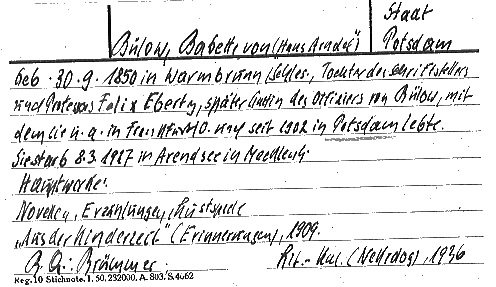 Stadt
Bülow, Babette von (Hans Arnold)
Potsdam
Geb. 30.9.1850 in Warmbrunn Schles., Tochter des Schriftstellers
und Professors Felix Eberty, später Gattin des Offiziers von Bülow, mit
dem sie u. a. in Frankfurt/O. und seit 1902 in Potsdam lebte.
Sie starb 8.3.1927 in Arendsee in Mecklenb.
Hauptwerke:
Novellen, Erzählungen, Lustspiele
„Aus der Kinderzeit" (Erinnerungen), 1909.
B. Qu.: Brümmer.
Lit.-Kal. (Nekrolog), 1936
Reg. 10 Stichnote. I. 50. 232000. A. 803. S. 4062